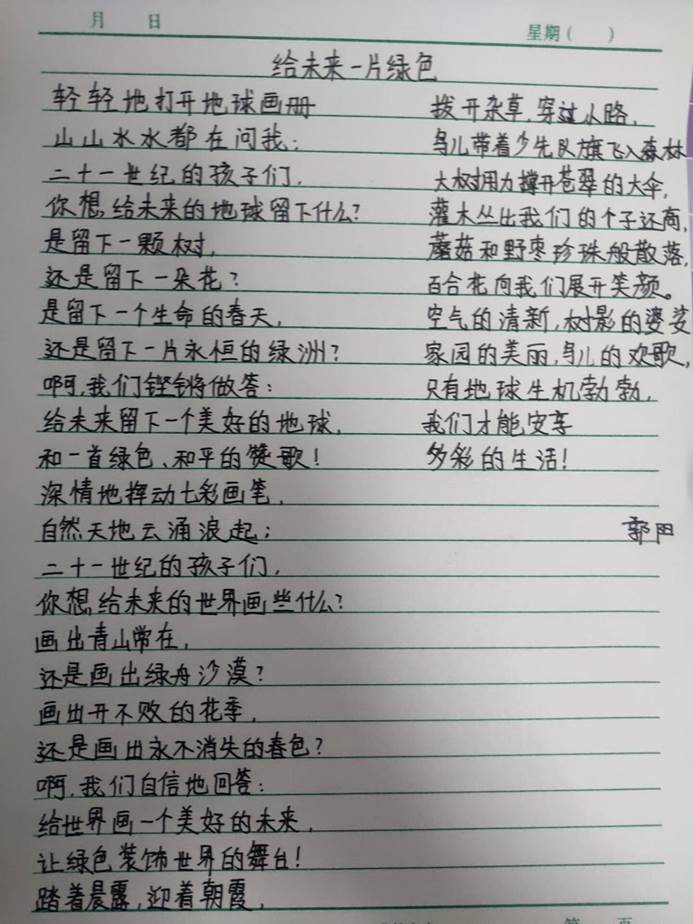 月 日
星期( )
给未来一片绿色
轻轻地打开地球画册
山山水水都在问我:
二十一世纪的孩子们,
你想,给未来的地球留下什么?
是留下一颗树,
还是留下一朵花?
是留下一个生命的春天,
还是留下一片永恒的绿洲?
啊,我们铿锵做答:
给未来留下一个美好的地球,
和一首绿色、和平的赞歌!
深情地挥动七彩画笔,
自然天地云涌浪起;
二十一世纪的孩子们,
你想,给未来的世界画些什么?
画出青山常在,
还是画出绿舟沙漠?
画出开不败的花季,
还是画出永不消失的春色?
啊,我们自信地回答:
给世界画一个美好的未来,
让绿色装饰世界的舞台!
踏着晨露,迎着朝霞,
拨开杂草,穿过小路,
鸟儿带着少先队旗飞入森林
大树用力撑开苍翠的大伞,
灌木丛比我们的个子还高,
蘑菇和野枣珍珠般散落,
百合花向我们展开笑颜。
空气的清新,树影的婆娑
家园的美丽,鸟儿的欢歌,
只有地球生机勃勃,
我们才能安享
多彩的生活!
郭阳